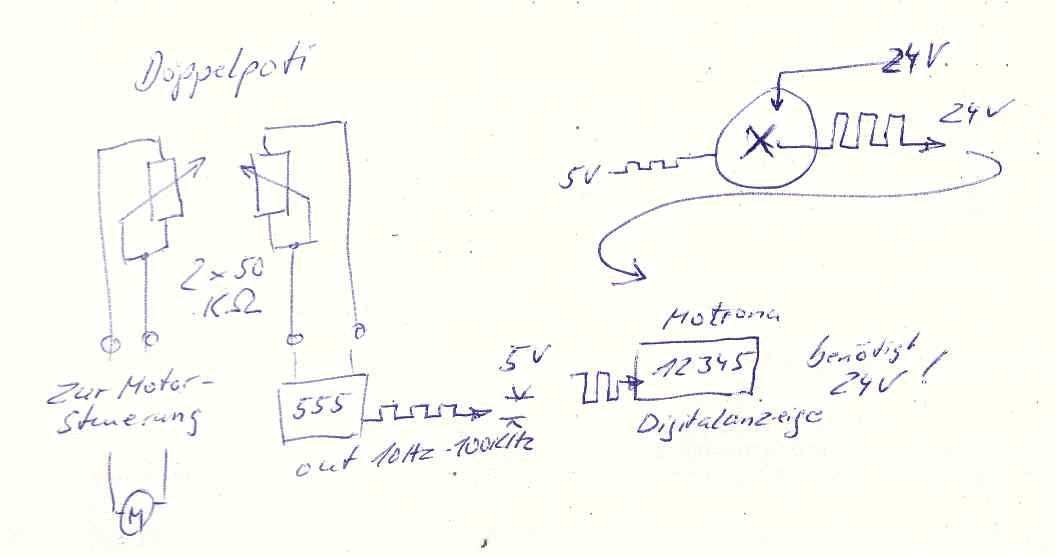 Doppelpoti
24V
5V
24V
2 x 50
KΩ
Zur Motor-
Steuerung
M
555
out 10Hz-100kHz
5V
Motrona
12345
Digitalanzeige
benötigt
24V!